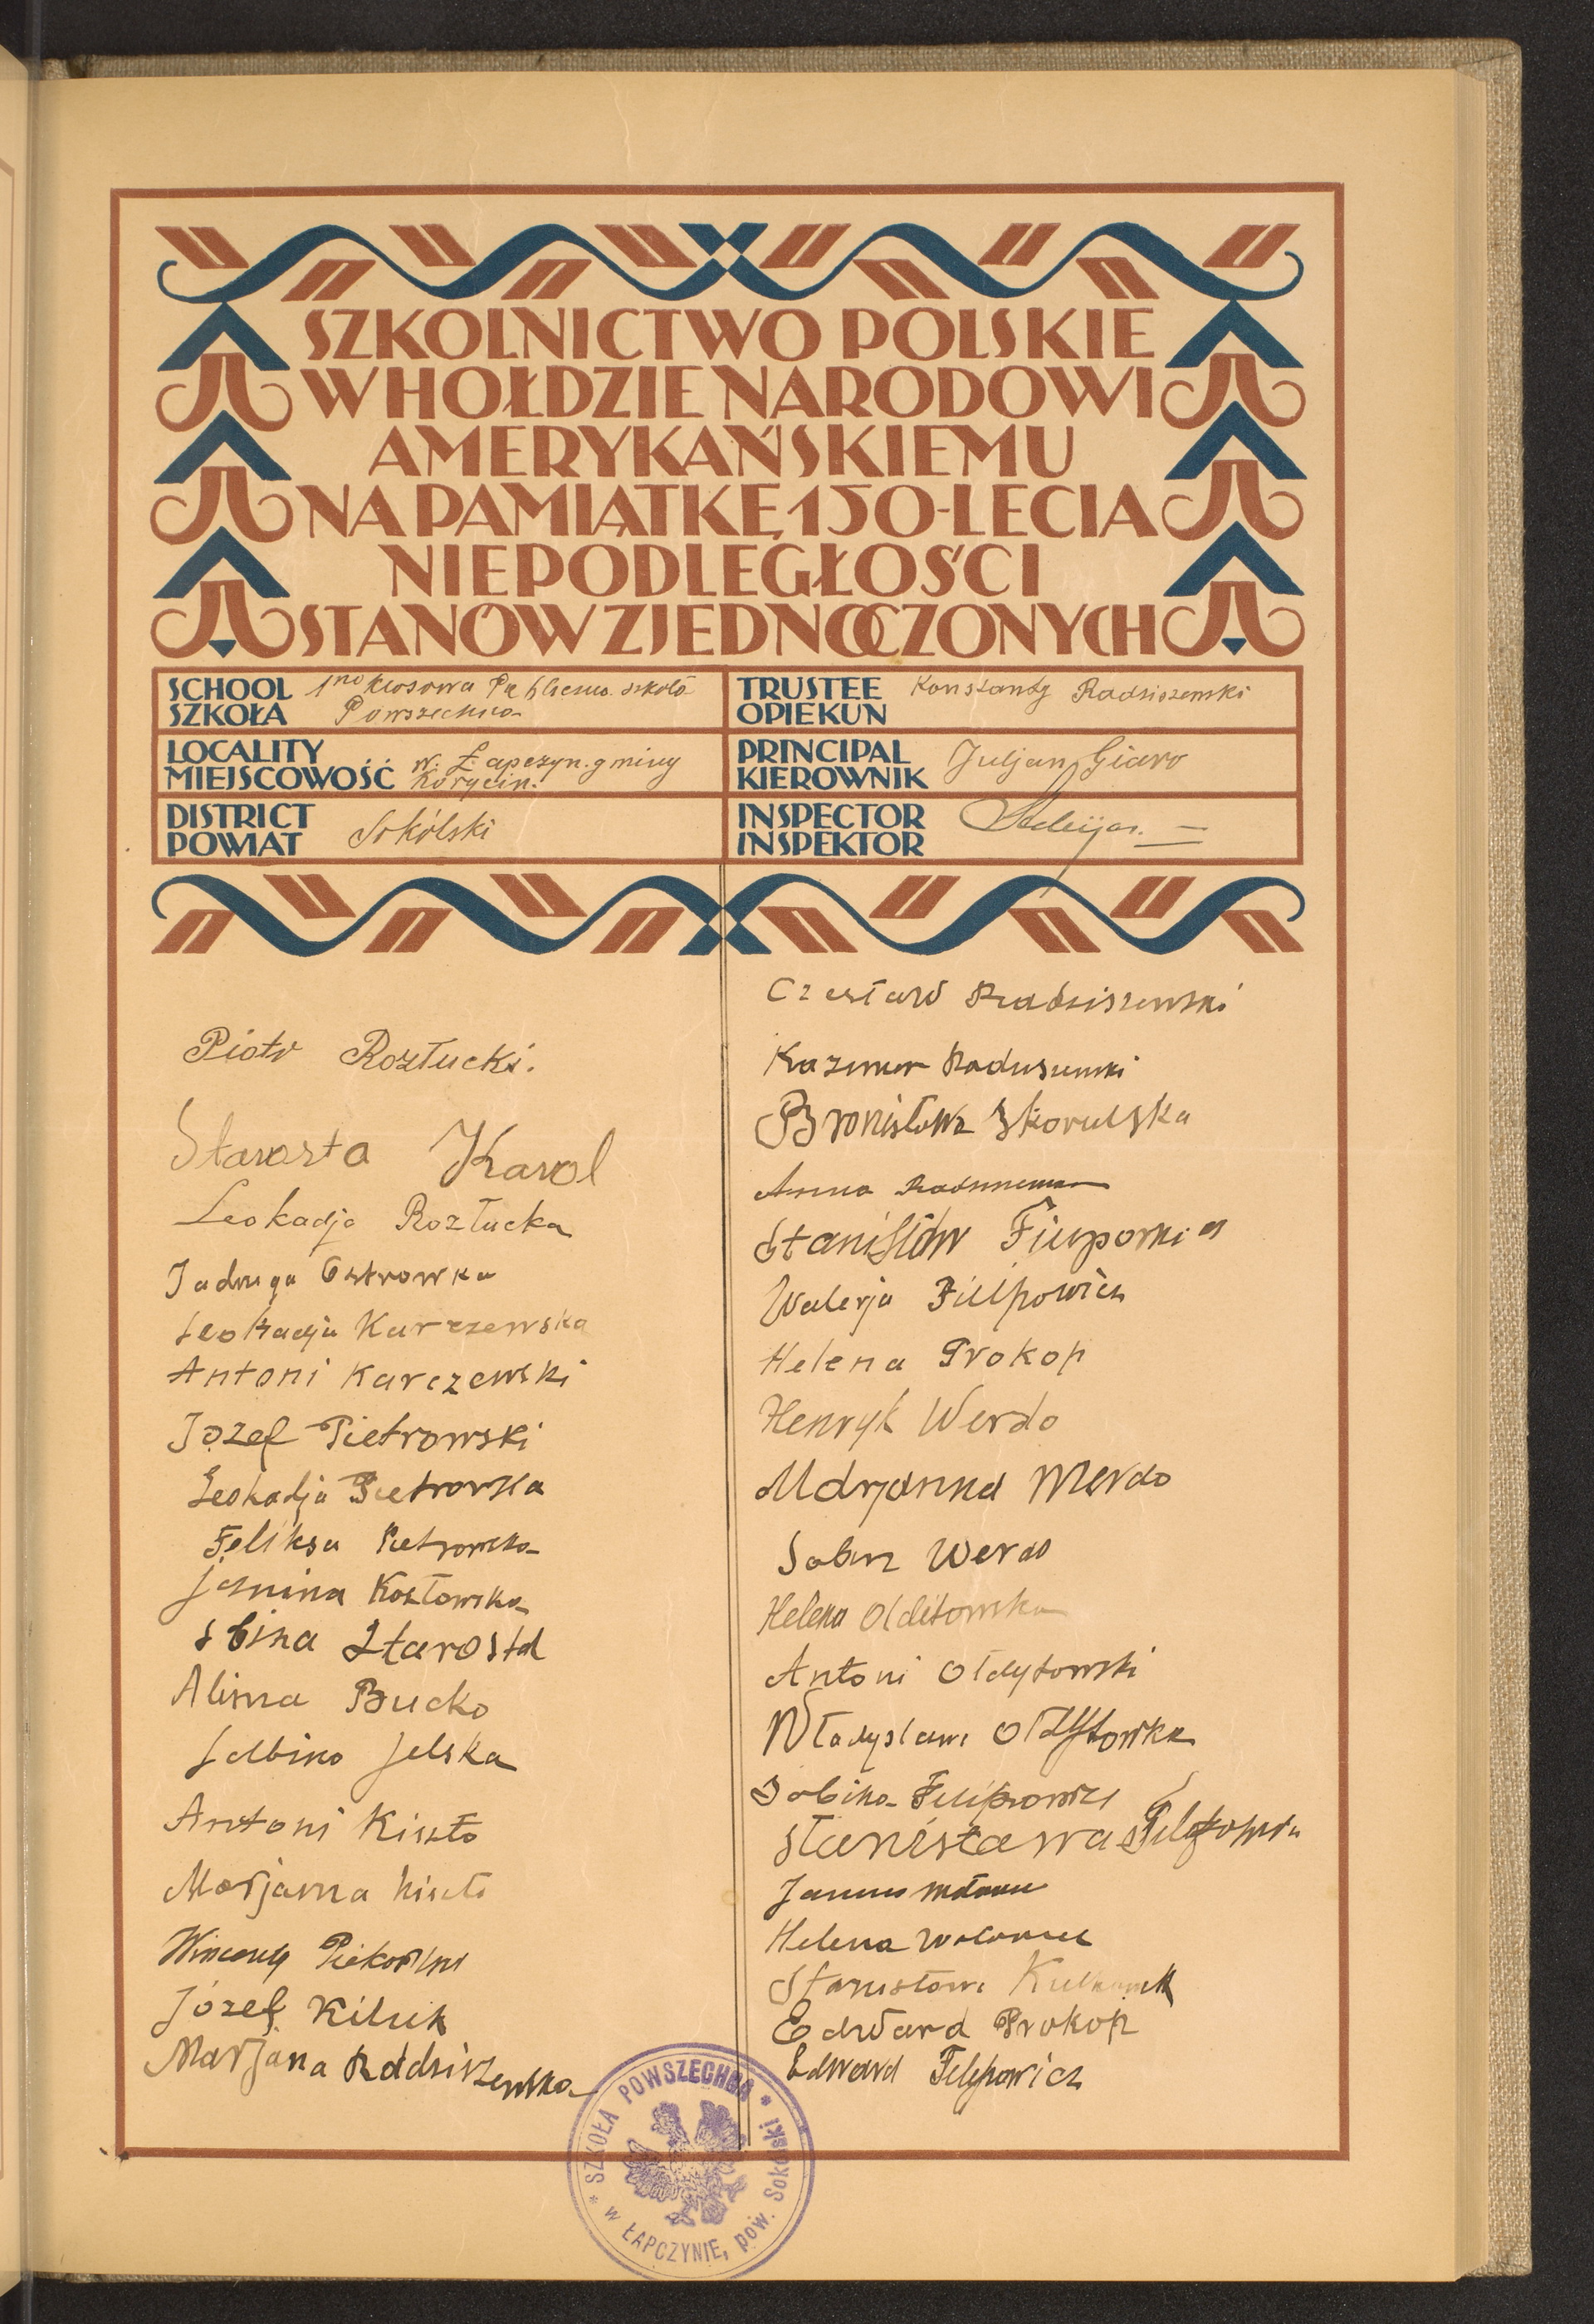 SZKOLNICTWO POLSKIE
W HOŁDZIE NARODOWI
AMERYKAŃSKIEMU
NA PAMIĄTKĘ 150-LECIA
NIEPODLEGŁOŚCI
STANÓW ZJEDNOCZONYCH
SCHOOL
SZKOŁA
1no klasowa szkoła
Powszechna
TRUSTEE
OPIEKUN
Konstanty Radziszewski
LOCALITY
MIEJSCOWOŚĆ
w. Łapczyn. gminy
Korycin.
PRINCIPAL
KIEROWNIK
Juljan Giaro
DISTRICT
POWIAT
Sokólski
INSPECTOR
INSPEKTOR
Piotr Rozłucki.
Starosta Karol
Leokadja Rozłucka
Jadwiga Ostrowka
Leokadja Karczewska
Antoni Karczewski
Józef Pietrowski
Leokadja Pietrowska
Feliksa Pietrowska
Janina Kozłowska
Starosta
Alina Bucko
Salbina Jelska
Antoni Kiszło
Marjanna Kiszło
Wincenty
Józef Kiluk
Marjana Radziszewska
Czesław Radziszewski
Bronisława Skorulska
Anna
Stanisław
Walerja Filipowicz
Helena Prokop
Henryk Werdo
Marjanna Werdo
Werdo
Helena
Antoni Ołdytowski
Władysława Ołdytowska
Sabina Filipowicz
Stanisława
Helena
Stanisława
Edward Prokop
Edward Filipowicz
* SZKOŁA POWSZECHNA *
w ŁAPCZYNIE, pow. Sokólski